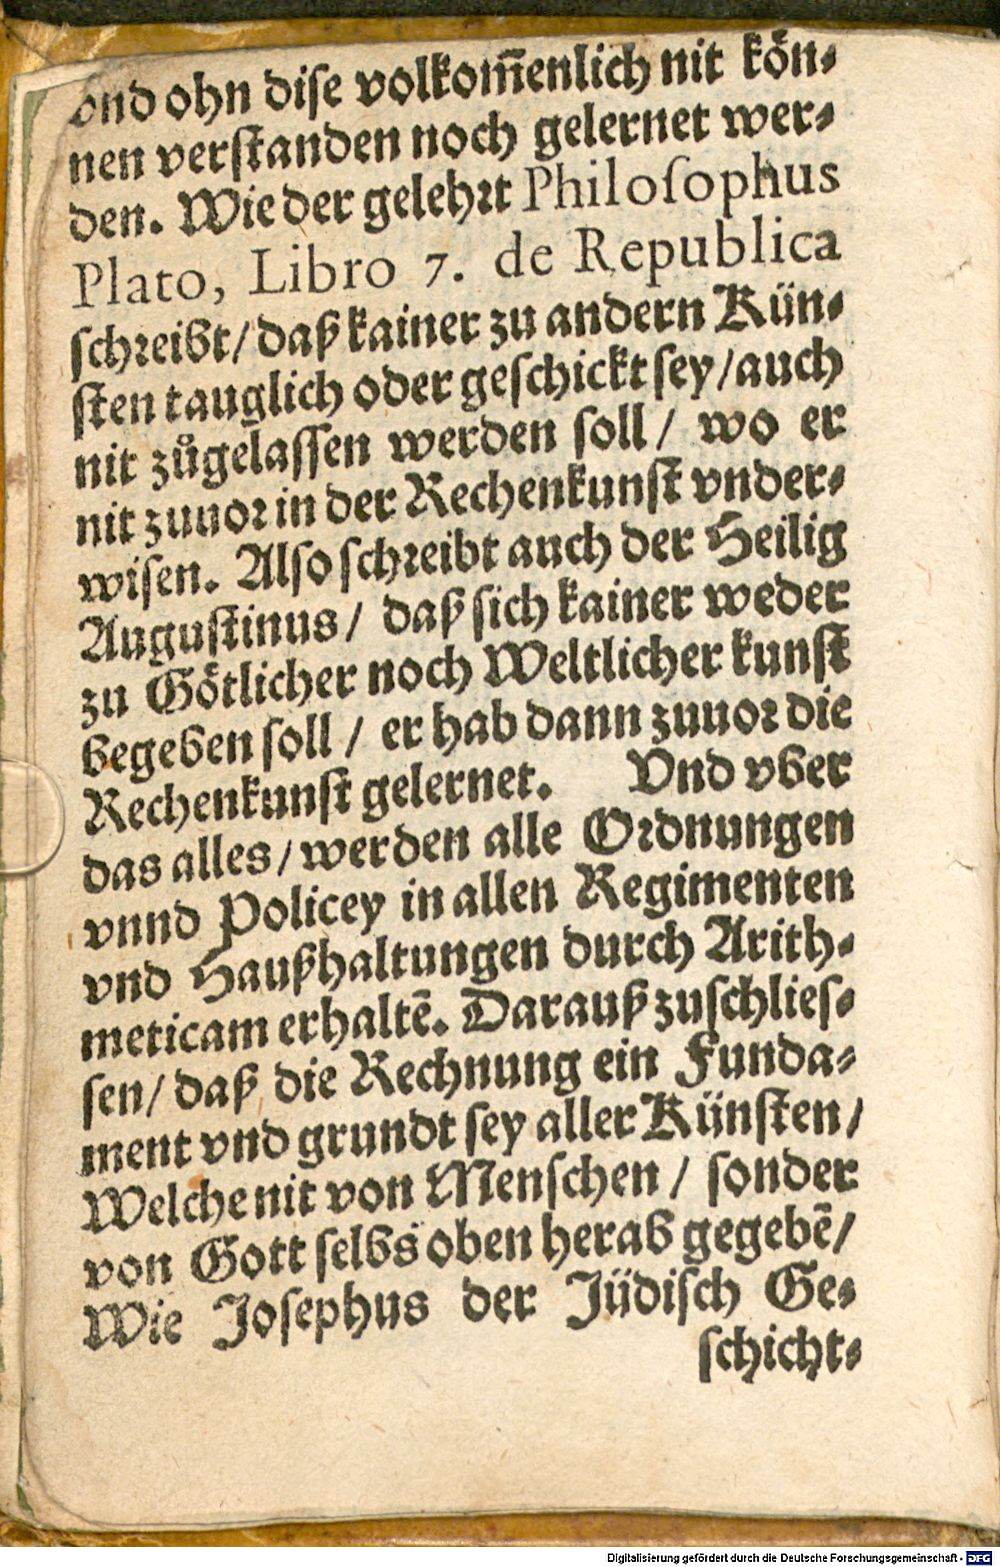 vnd ohn dise volkom̃enlich nit kön⸗
nen verstanden noch gelernet wer⸗
den. Wie der gelehrt Philosophus
Plato, Libro 7. de Republica
schreibt/ daß kainer zu andern Kün⸗
sten tauglich oder geschickt sey/ auch
nit zůgelassen werden soll/ wo er
nit zuuor in der Rechenkunst vnder⸗
wisen. Also schreibt auch der Heilig
Augustinus/ daß sich kainer weder
zu Götlicher noch Weltlicher kunst
begeben soll/ er hab dann zuuor die
Rechenkunst gelernet. Vnd vber
das alles/ werden alle Ordnungen
vnnd Policey in allen Regimenten
vnd Haußhaltungen durch Arith⸗
meticam erhaltẽ. Darauß zuschlies⸗
sen/ daß die Rechnung ein Funda⸗
ment vnd grundt sey aller Künsten/
Welche nit von Menschen/ sonder
von Gott selbs oben herab gegebẽ/
Wie Josephus der Jüdisch Ge⸗
schicht⸗
Digitalisierung gefördert durch die Deutsche Forschungsgemeinschaft - DFG